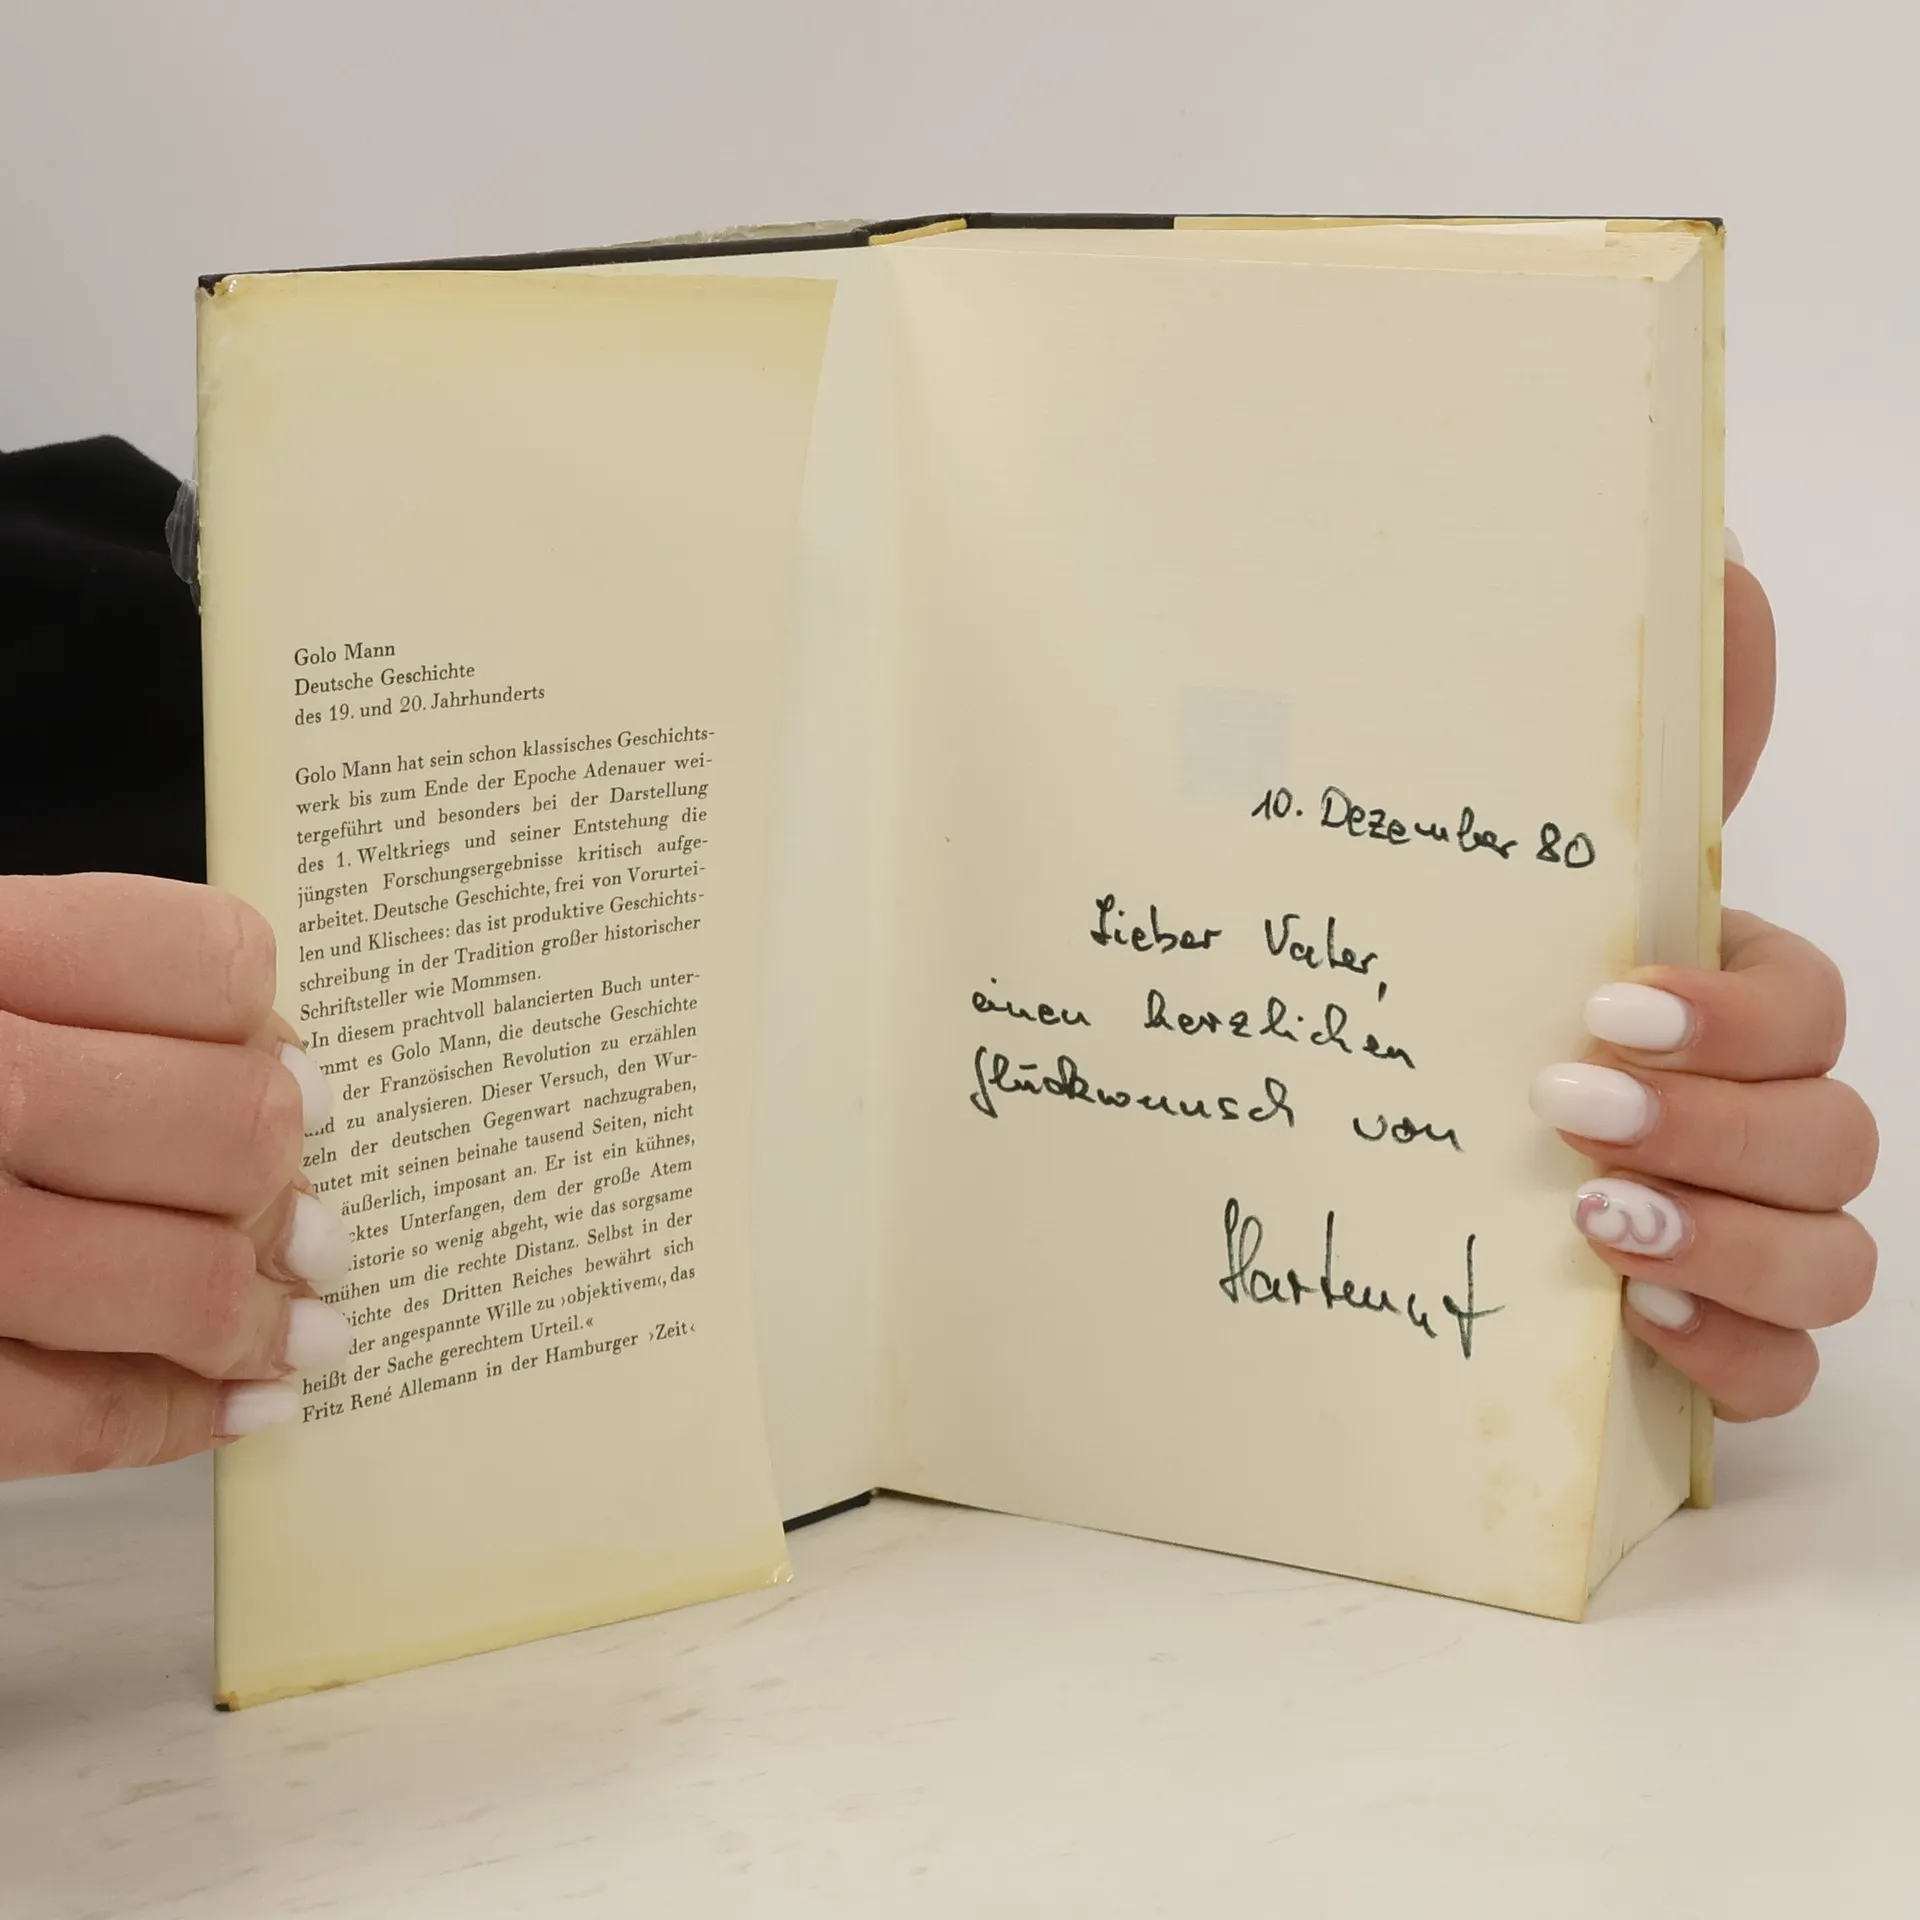 Golo Mann
Deutsche Geschichte
des 19. und 20. Jahrhunderts
Golo Mann hat sein schon klassisches Geschichts-
werk bis zum Ende der Epoche Adenauer wei-
tergeführt und besonders bei der Darstellung
des 1. Weltkriegs und seiner Entstehung die
jüngsten Forschungsergebnisse kritisch aufge-
arbeitet. Deutsche Geschichte, frei von Vorurtei-
len und Klischees: das ist produktive Geschichts-
schreibung in der Tradition großer historischer
Schriftsteller wie Mommsen.
»In diesem prachtvoll balancierten Buch unter-
mmt es Golo Mann, die deutsche Geschichte
der Französischen Revolution zu erzählen
nd zu analysieren. Dieser Versuch, den Wur-
zeln der deutschen Gegenwart nachzugraben,
mutet mit seinen beinahe tausend Seiten, nicht
äußerlich, imposant an. Er ist ein kühnes,
cktes Unterfangen, dem der große Atem
istorie so wenig abgeht, wie das sorgsame
mühen um die rechte Distanz. Selbst in der
ichte des Dritten Reiches bewährt sich
der angespannte Wille zu ›objektivem‹, das
heißt der Sache gerechtem Urteil.«
Fritz René Allemann in der Hamburger ›Zeit‹
10. Dezember 80
Lieber Vater,
einen herzlichen
Glückwunsch von
Hartmut